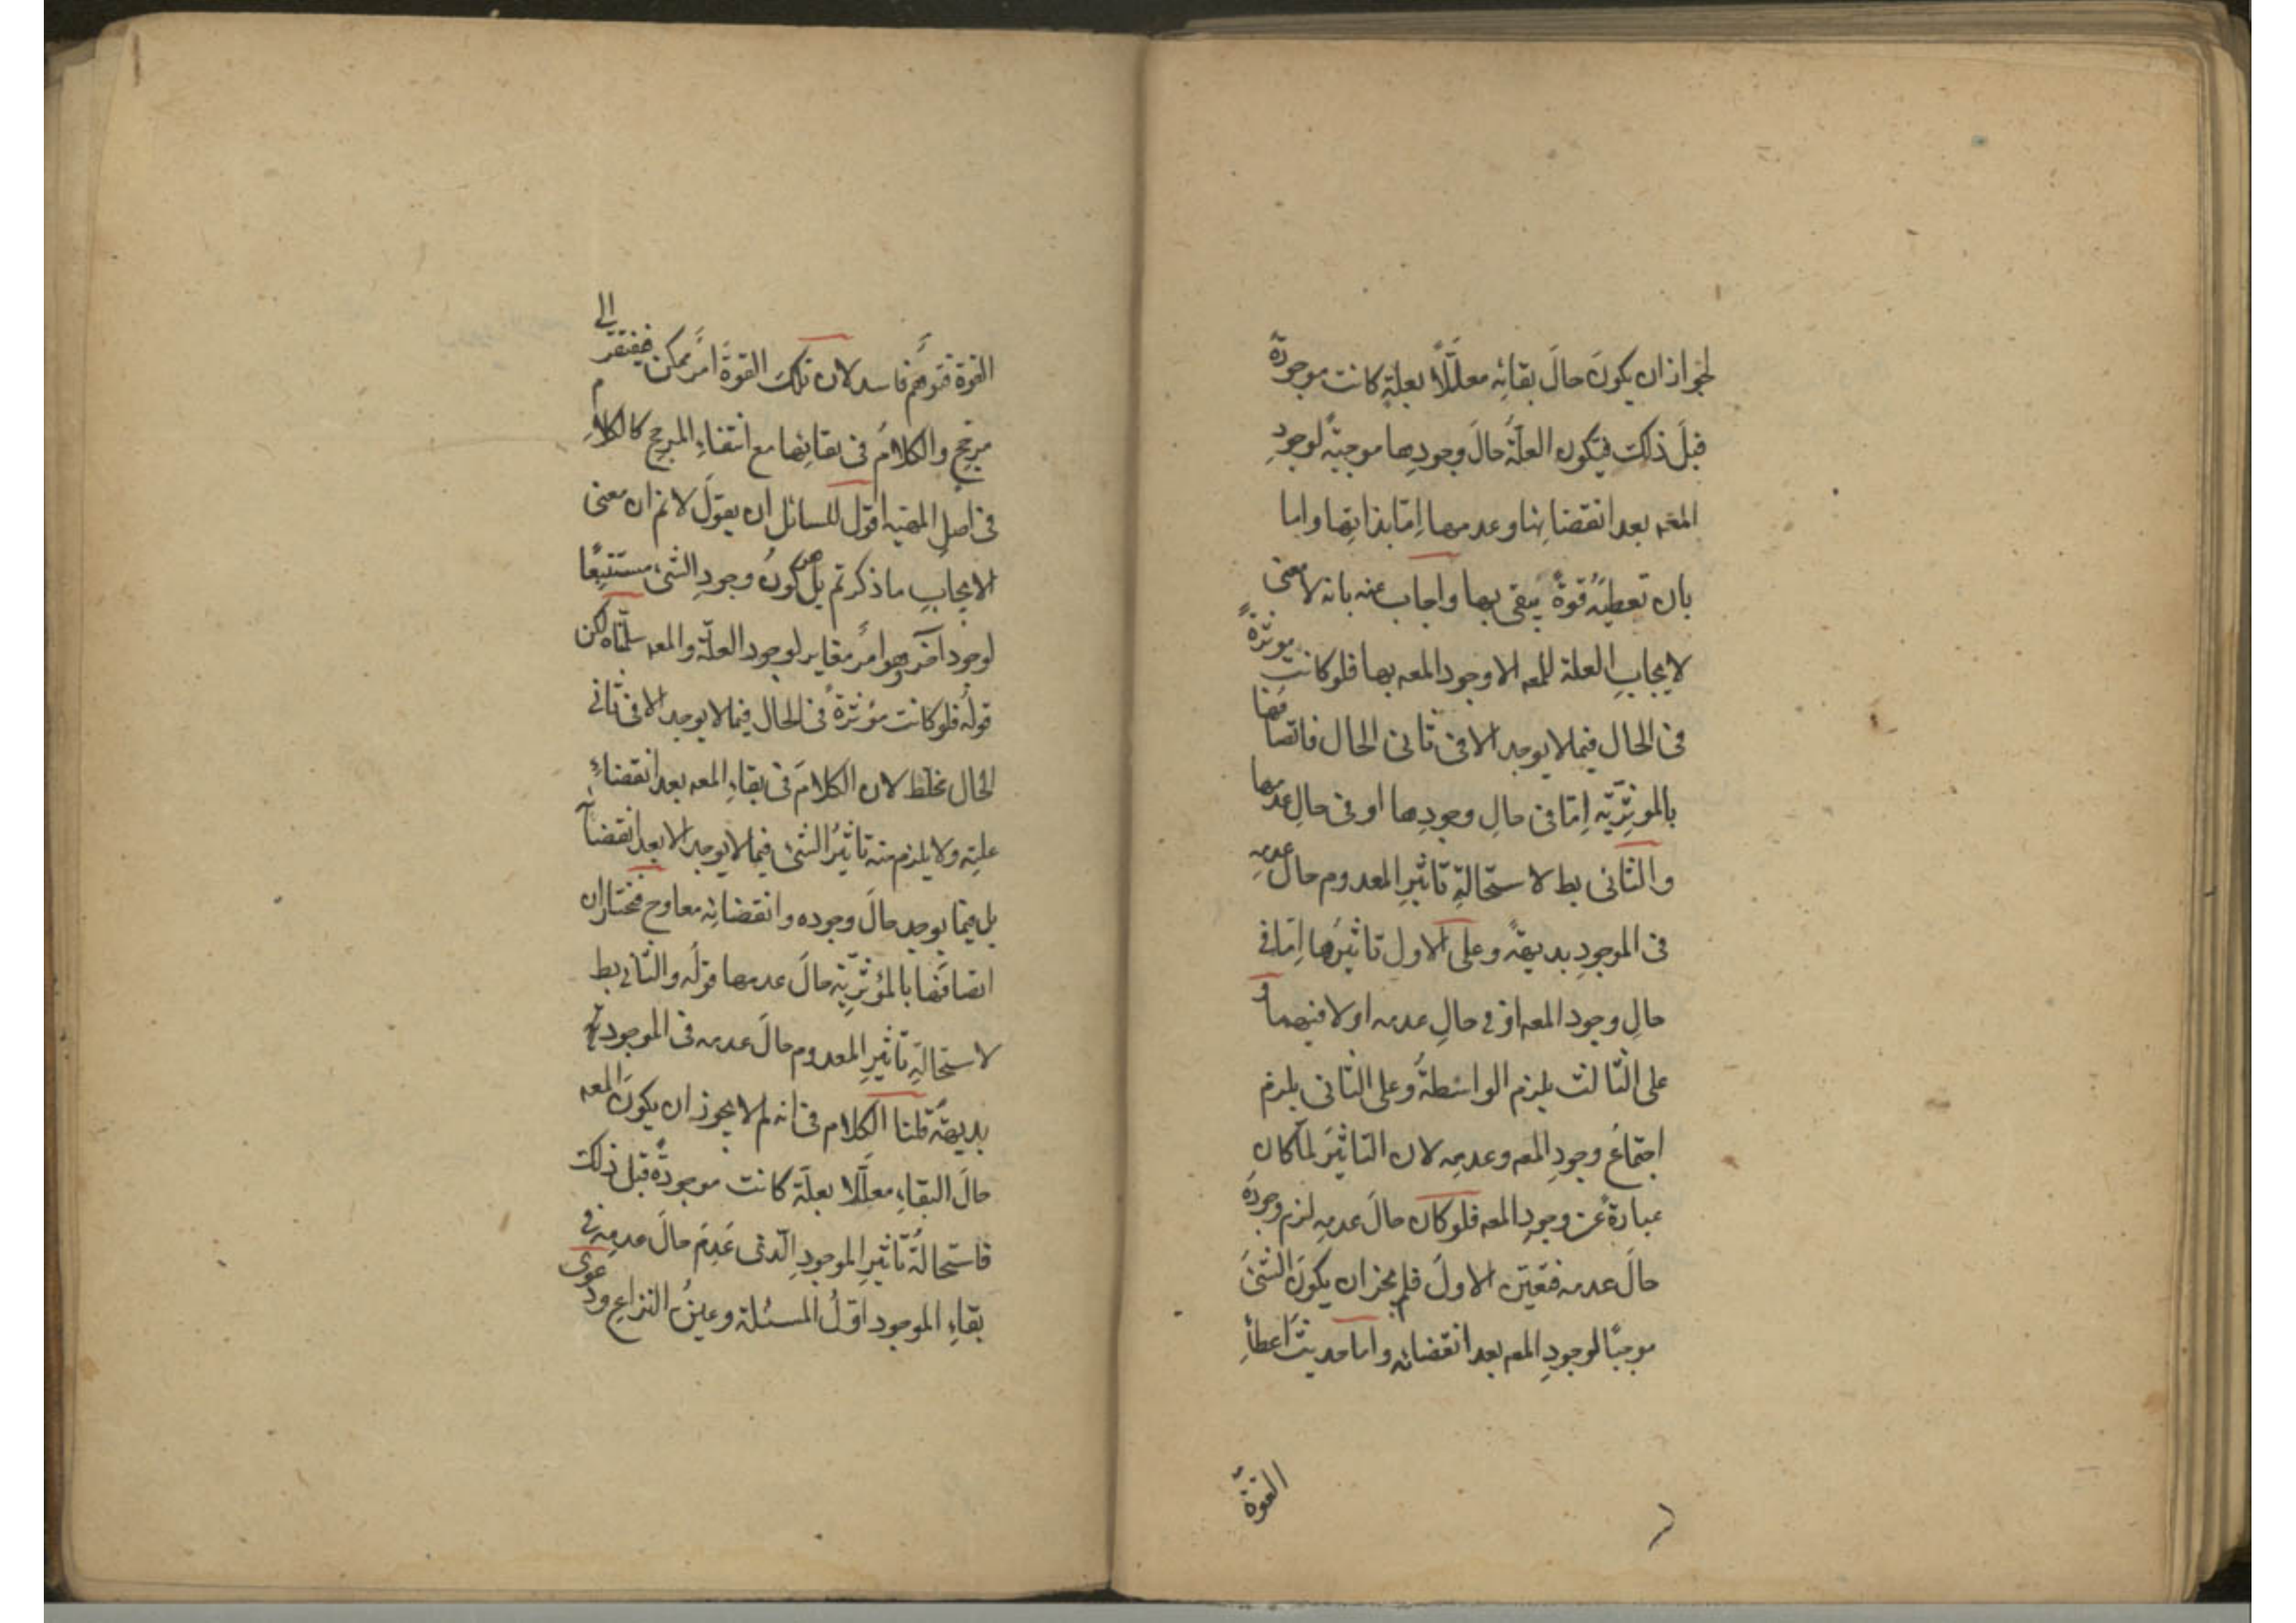 لجواز ان يكونَ حالَ بقائِه معلَّلًا بعلةٍ كانت موجودة
قبلَ ذلك فيكون العلّةُ حالَ وجودِها موجبةً لوجودِ
المعه بعد انقضائها وعدمها اِمّا بذاتِها واما
بان تعطيَه قوةً يبقى بها واجاب عنه بانه لا معنى
لايجابِ العلة للمعه الا وجود المعه بها فلو كانت موثرةً
فى الحال فيما لا يوجد الا فى ثانى الحال فاتصافها
بالموثِّريّه اِمّا فى حالِ وجودِها او فى حالِ عدمها
والثانى بط لاستحالةِ تاثيرِ المعدوم حالَ عدمِه
فى الموجودِ بديهةً وعلى الاول تاثيرُها اِمّا فى
حالِ وجود المعه او فى حالِ عدمه او لا فيهما و
على الثالث يلزم الواسطةُ وعلى الثانى يلزم
اجتماعُ وجودِ المعه وعدمِه لان التاثيرَ لمّا كان
عبارةً عن وجودِ المعه فلو كان حالَ عدمِه لزم وجودُه
حالَ عدمه فتعيّن الاولَ فلم يجز ان يكونَ الشئَ
موجبًا لوجودِ المعه بعد انقضائه واما حديثُ اعطاءِ
القوة
القوة فتوهّم فاسد لان تلك القوةَ امر ممكن فيفتقر الى
مرجّح والكلامُ فى بقائها مع انتفاءِ المرجح كالكلام
فى اصلِ المهيه اقول للسائل ان يقولَ لانم ان معنى
الايجابِ ما ذكرتم بل هو كونُ وجودِ الشئ مستتبِعًا
لوجود آخر وهو امرٌ مغاير لوجود العلّة والمعه سلّمناه لكن
قولُه فلو كانت مؤثرةً فى الحال فيما لا يوجد الا فى ثانى
الحال غلط لان الكلامَ فى بقاءِ المعه بعد انقضاءِ
علتِه ولا يلزم منه تاثيرُ الشئ فيما لا يوجد الا بعد انقضائه
بل فيما يوجد حالَ وجوده وانقضائِه معا وح نختار ان
اتصافَها بالمؤثّريّه حالَ عدمها قولُه والثانى بط
لاستحالةِ تاثيرِ المعدوم حالَ عدمه فى الموجود
بديهةً قلنا الكلام فى انه لم لا يجوز ان يكونَ المعه
حالَ البقاءِ معلّلا بعلّة كانت موجودةً قبل ذلك
فاستحالةُ تاثيرِ الموجودِ الّذى عَدِمَ حالَ عدمِه فى
بقاءِ الموجود اوّلُ المسئلة وعينُ النزاعِ ودعوى